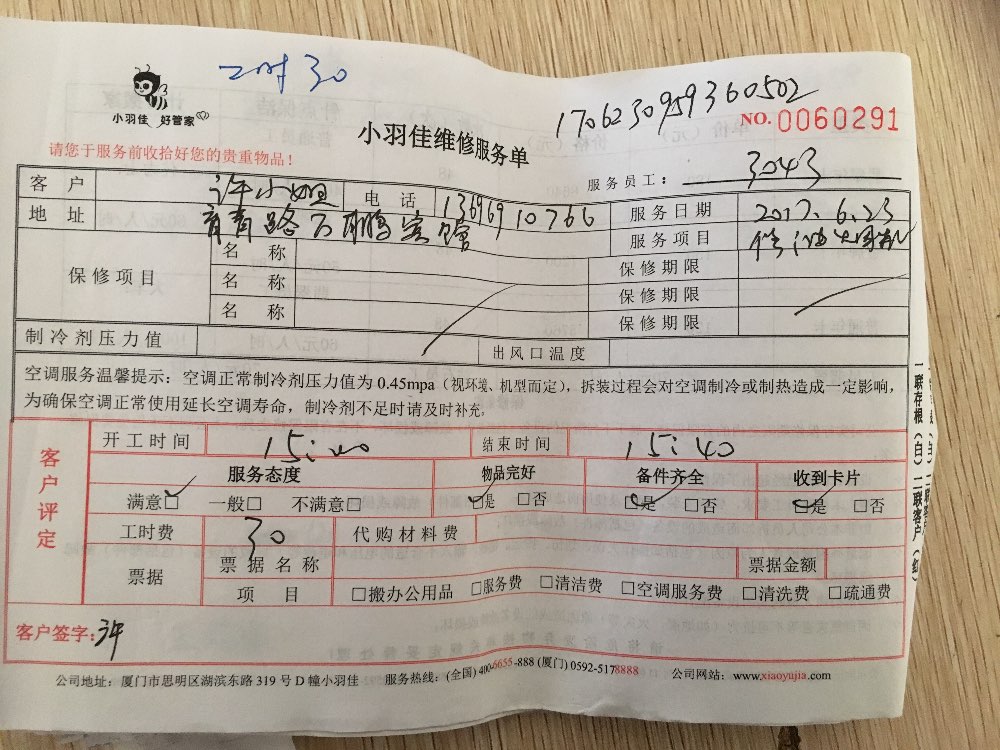 二时30
小羽佳 好管家
1706230959360502
NO. 0060291
小羽佳维修服务单
请您于服务前收拾好您的贵重物品！
服务员工： 3043
客 户 许小姐 电 话 13696910766 服务日期 2017.6.23
地 址 服务项目
保修项目
名 称 保修期限
名 称 保修期限
名 称 保修期限
制冷剂压力值 出风口温度
空调服务温馨提示：空调正常制冷剂压力值为 0.45mpa（视环境、机型而定），拆装过程会对空调制冷或制热造成一定影响，
为确保空调正常使用延长空调寿命，制冷剂不足时请及时补充。
客户评定
开工时间 15:00 结束时间 15:40
服务态度 物品完好 备件齐全 收到卡片
满意□ 一般□ 不满意□ □是 □否 □是 □否 □是 □否
工时费 30 代购材料费
票据 票据名称 票据金额
项 目 □搬办公用品 □服务费 □清洁费 □空调服务费 □清洗费 □疏通费
客户签字：许
公司地址：厦门市思明区湖滨东路 319 号 D 幢小羽佳 服务热线：(全国) 400-6655-888 (厦门) 0592-5178888 公司网站：www.xiaoyujia.com
一联存根（白）二联客户（红）